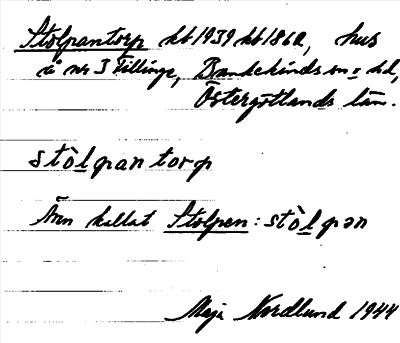 Stolpantorp hb 1939 hb 1862, hus
å nr 3 Fillinge, Bankekinds sn o hd,
Östergötlands län.
stòlpantorp
Även kallat Stolpen: stòlpən
Maja Nordlund 1944